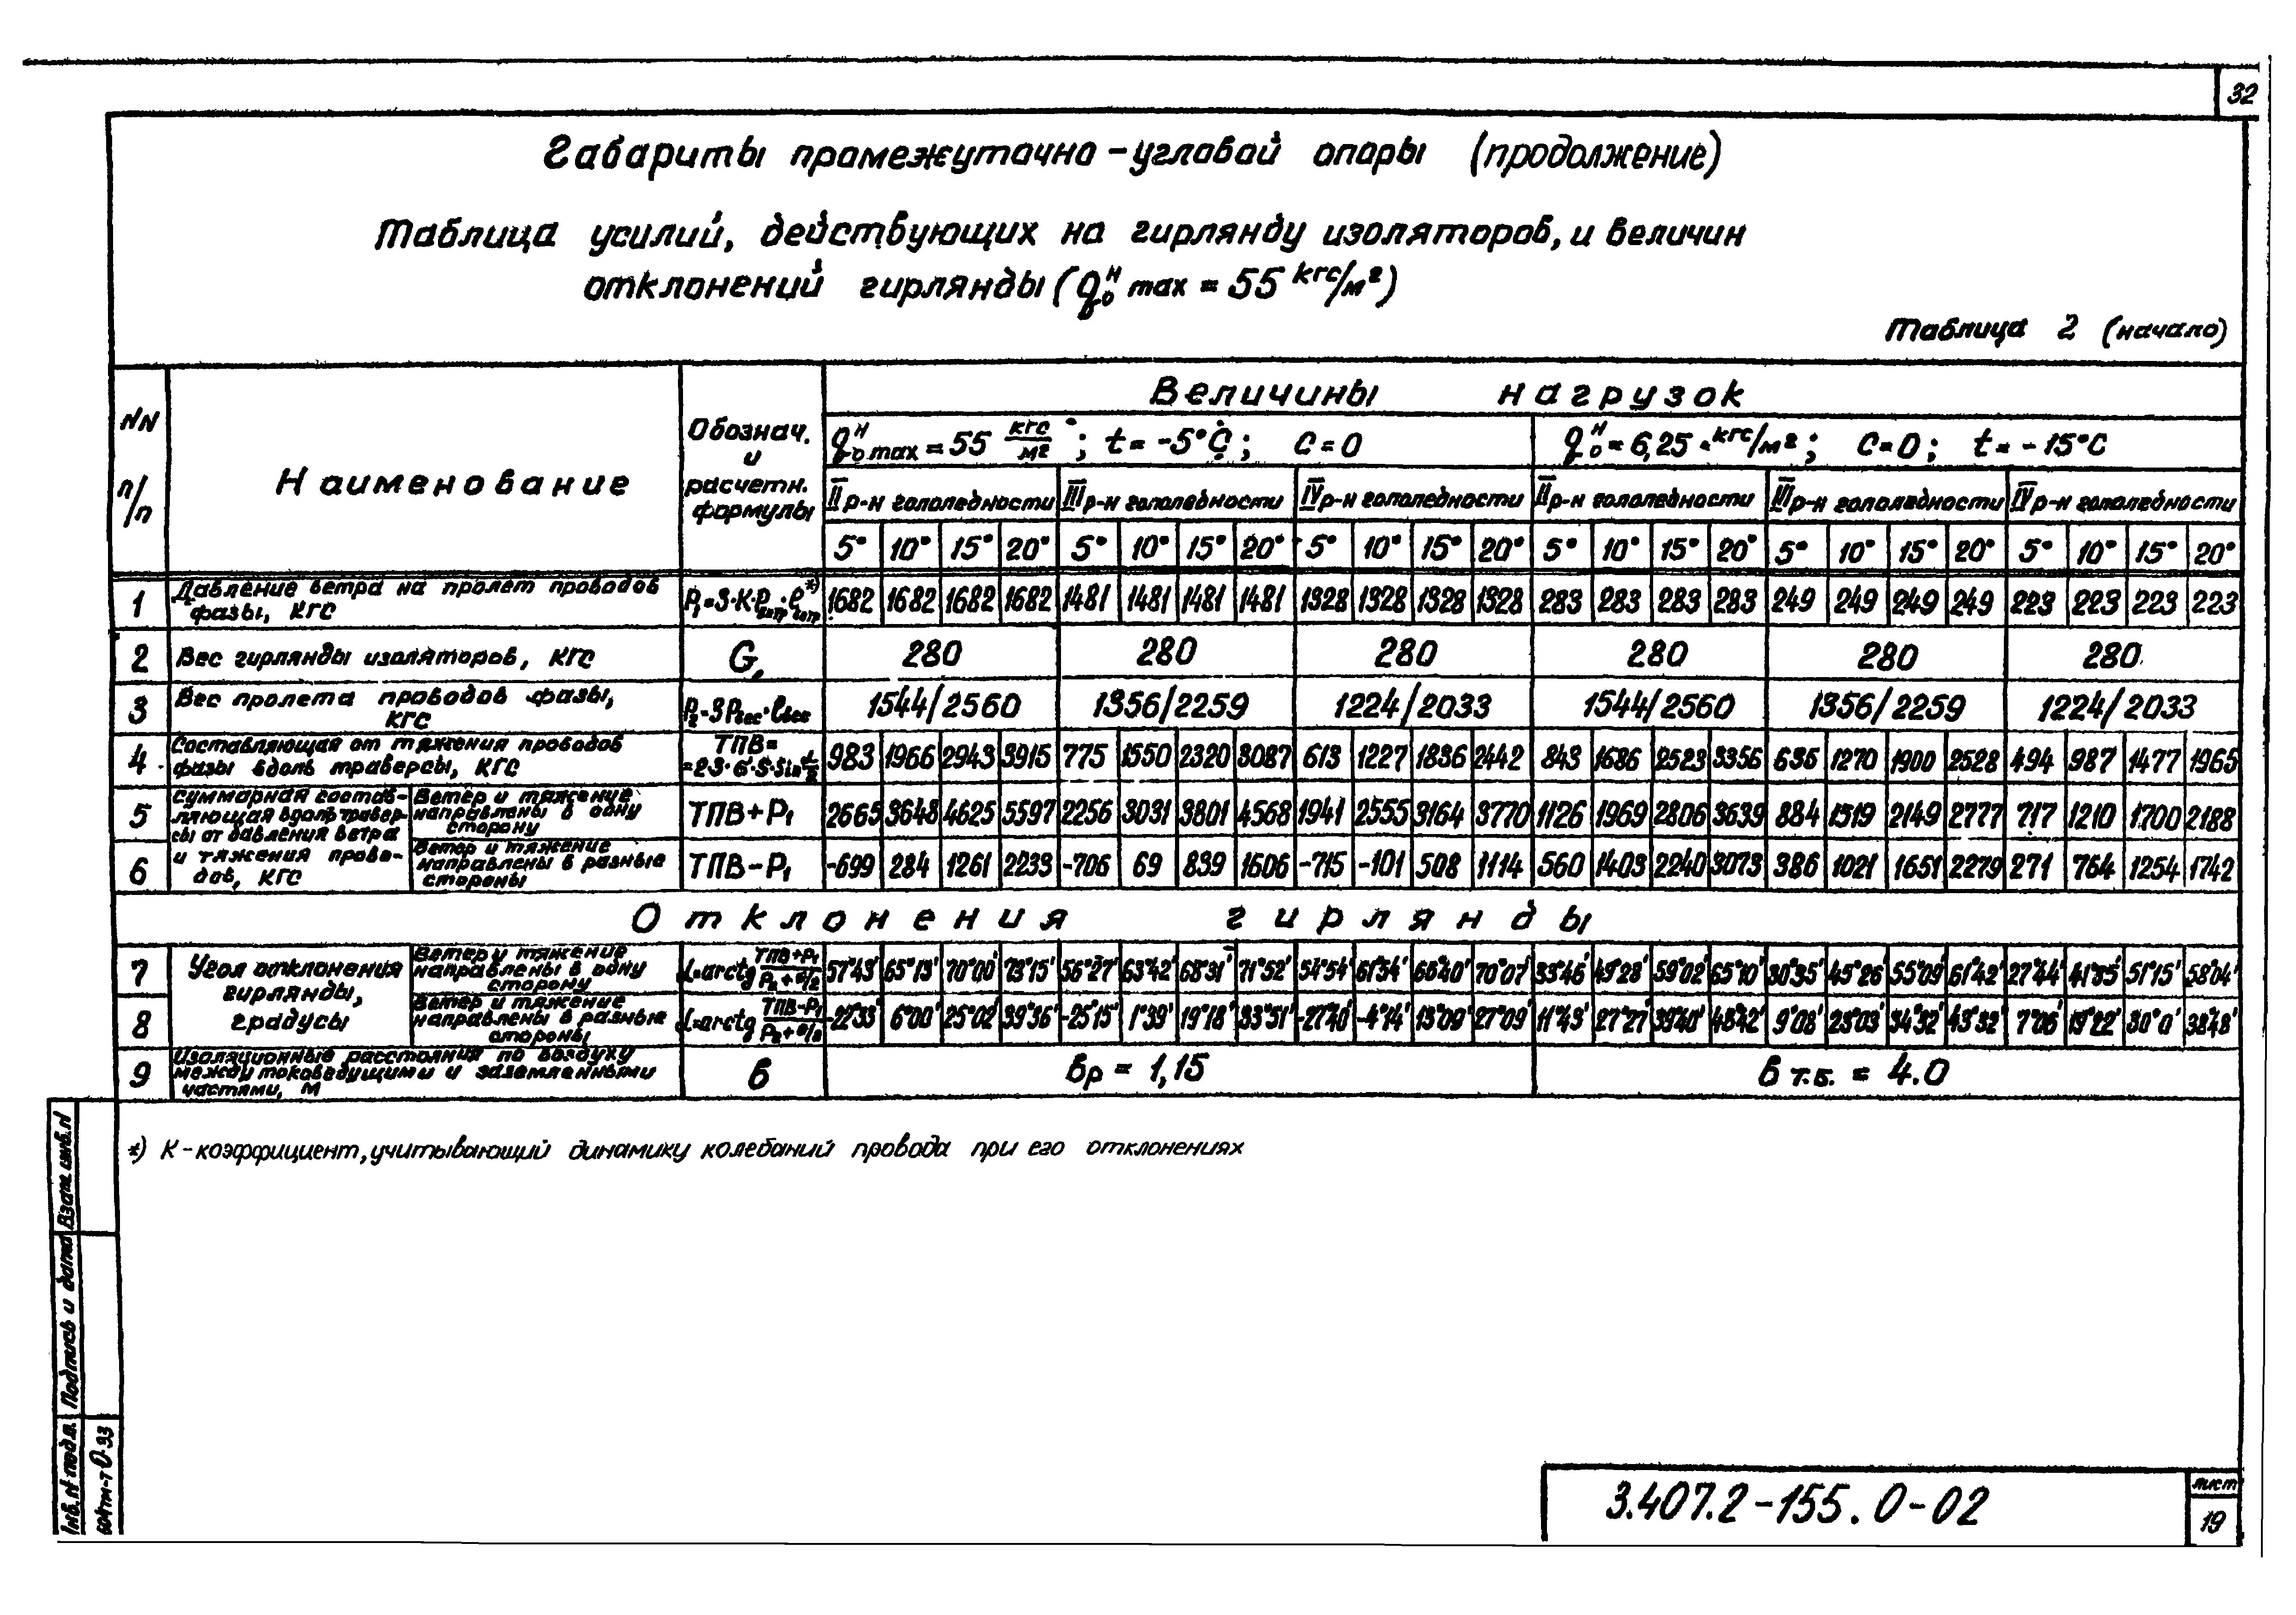 32
Габариты промежуточно-угловой опоры (продолжение)
Таблица усилий, действующих на гирлянду изоляторов, и величин
отклонений гирлянды (q₀ᴴ max = 55 кгс/м²)
Таблица 2 (начало)
NN п/п
Наименование
Обознач. и расчетн. формулы
Величины нагрузок
q₀ᴴ max = 55 кгс/м²; t = -5°C; C = 0
q₀ᴴ = 6,25 кгс/м²; C = 0; t = -15°C
II р-н гололедности III р-н гололедности IV р-н гололедности II р-н гололедности III р-н гололедности IV р-н гололедности
5° 10° 15° 20° 5° 10° 15° 20° 5° 10° 15° 20° 5° 10° 15° 20° 5° 10° 15° 20° 5° 10° 15° 20°
1 Давление ветра на пролет проводов фазы, кгс 1682 1682 1682 1682 1481 1481 1481 1481 1328 1328 1328 1328 283 283 283 283 249 249 249 249 223 223 223 223
2 Вес гирлянды изоляторов, кгс G 280 280 280 280 280 280
3 Вес пролета проводов фазы, кгс P₂=3Pвес·lвес 1544/2560 1356/2259 1224/2033 1544/2560 1356/2259 1224/2033
4 Составляющая от тяжения проводов фазы вдоль траверсы, кгс ТПВ= 983 1966 2943 3915 775 1550 2320 3087 613 1227 1836 2442 843 1686 2523 3356 635 1270 1900 2528 494 987 1477 1965
Суммарная составляющая вдоль траверсы от давления ветра и тяжения проводов, кгс
5 Ветер и тяжение направлены в одну сторону ТПВ+P₁ 2665 3648 4625 5597 2256 3031 3801 4568 1941 2555 3164 3770 1126 1969 2806 3639 884 1519 2149 2777 717 1210 1700 2188
6 Ветер и тяжение направлены в разные стороны ТПВ-P₁ -699 284 1261 2233 -706 69 839 1606 -715 -101 508 1114 560 1403 2240 3073 386 1021 1651 2279 271 764 1254 1742
Отклонения гирлянды
Угол отклонения гирлянды, градусы
7 Ветер и тяжение направлены в одну сторону α=arctg (ТПВ+P₁)/(P₂+G/2) 57°43' 65°13' 70°00' 73°15' 56°27' 63°42' 68°31' 71°52' 54°54' 61°54' 66°40' 70°07' 33°46' 49°28' 59°02' 65°10' 30°35' 45°26' 55°09' 61°42' 27°44' 41°35' 51°15' 58°04'
8 Ветер и тяжение направлены в разные стороны α=arctg (ТПВ-P₁)/(P₂+G/2) -22°33' 6°00' 25°02' 39°36' -25°15' 1°39' 19°18' 33°51' -27°40' -4°14' 13°09' 27°09' 11°43' 27°27' 39°40' 48°42' 9°08' 23°03' 34°32' 43°32' 7°06' 19°22' 30°0' 38°48'
9 Изоляционные расстояния по воздуху между токоведущими и заземленными частями, м в вр = 1,15 в т.б. = 4.0
*) К - коэффициент, учитывающий динамику колебаний провода при его отклонениях
Взам. инв. N
Подпись и дата
Инв. N подл.
3.407.2-155.0-02
лист
19